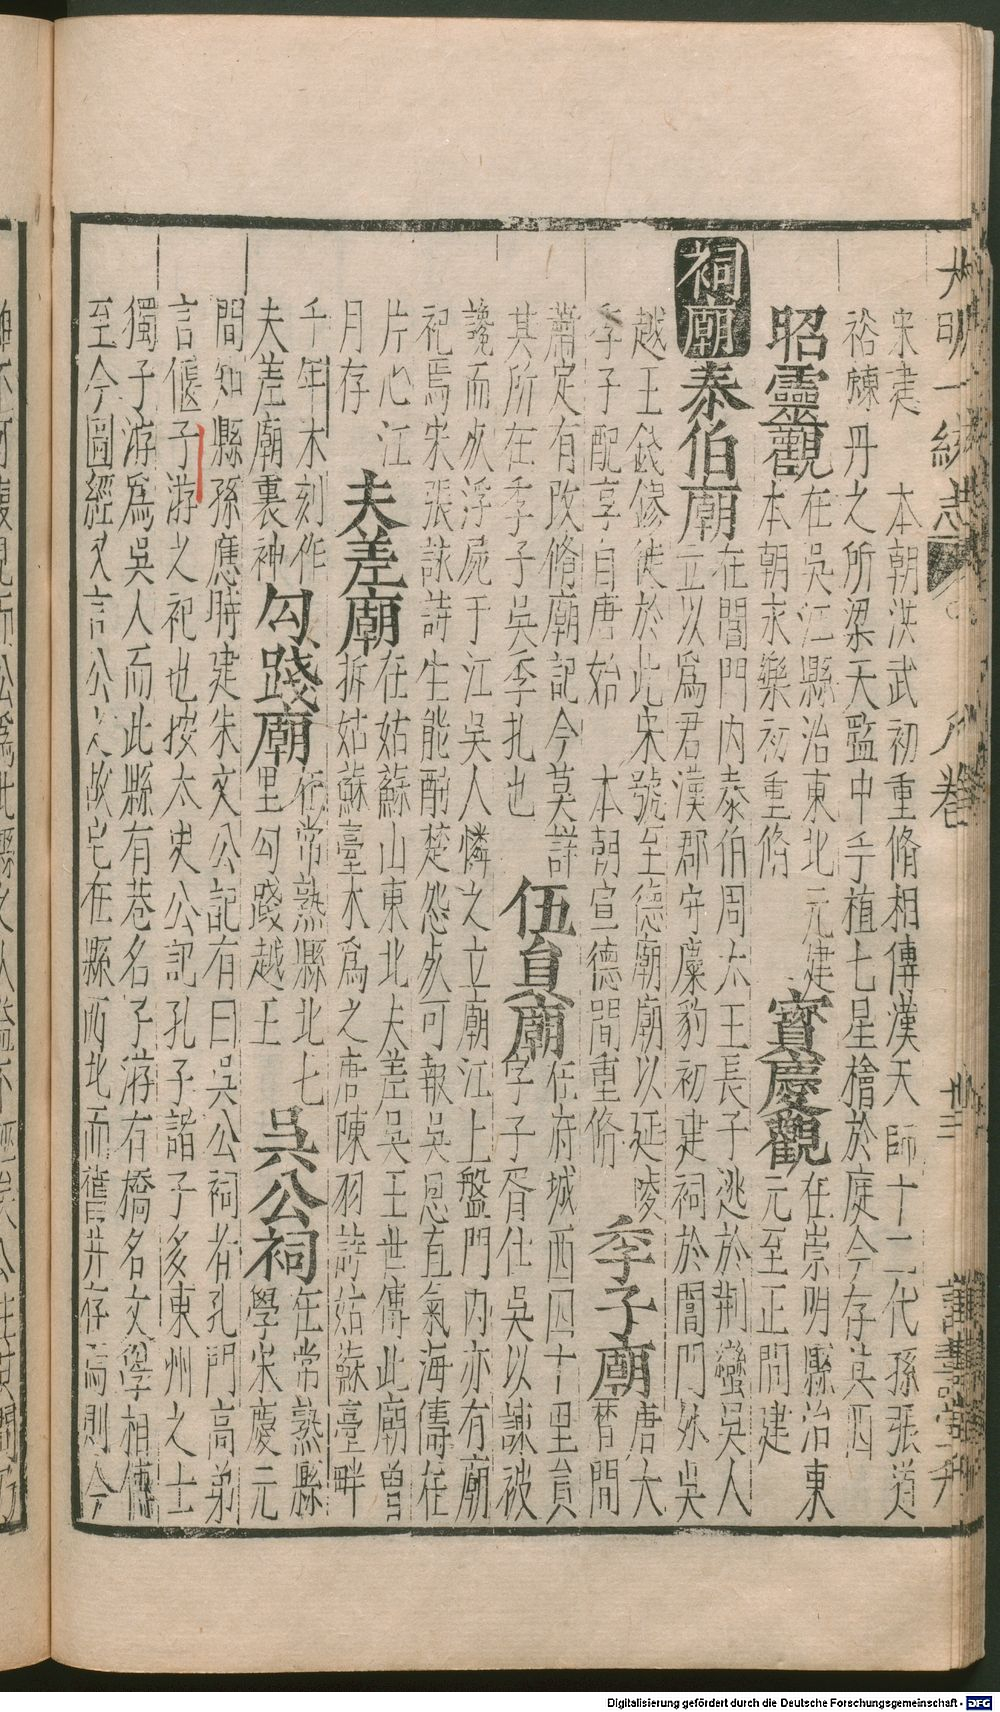 大明一統志 八卷 廿三
宋建　本朝洪武初重脩相傳漢天師十二代孫張道
裕煉丹之所梁天監中手植七星檜於庭今存其四
昭靈觀 在吳江縣治東北元建
本朝永樂初重脩
寶慶觀 在崇明縣治東
元至正間建
祠廟 泰伯廟 在閶門内泰伯周太王長子逃於荆蠻吳人
立以爲君漢郡守麋豹初建祠於閶門外吳
越王錢鏐徙於此宋號至德廟廟以延陵
季子配享自唐始　本朝宣德間重脩
季子廟 唐大
曆間
蕭定有改脩廟記今莫詳
其所在季子吳季扎也
伍員廟 在府城西四十里員
字子胥仕吳以諫被
讒而死浮屍于江吳人憐之立廟江上盤門内亦有廟
祀焉宋張詠詩生能酧楚怨死可報吳恩直氣海濤在
片心江
月存
夫差廟 在姑蘇山東北夫差吳王世傳此廟曽
拆姑蘇臺木爲之唐陳羽詩姑蘇臺畔
千年木刻作
夫差廟裏神
勾踐廟 在常熟縣北七
里勾踐越王
吳公祠 在常熟縣
學宋慶元
間知縣孫應時建朱文公記有曰吳公祠者孔門高弟
言偃子游之祀也按太史公記孔子諸子多東州之士
獨子游爲吳人而此縣有巷名子游有橋名文學相傳
至今圖經又言公之故宅在縣西北而舊井存焉則今
Digitalisierung gefördert durch die Deutsche Forschungsgemeinschaft - DFG